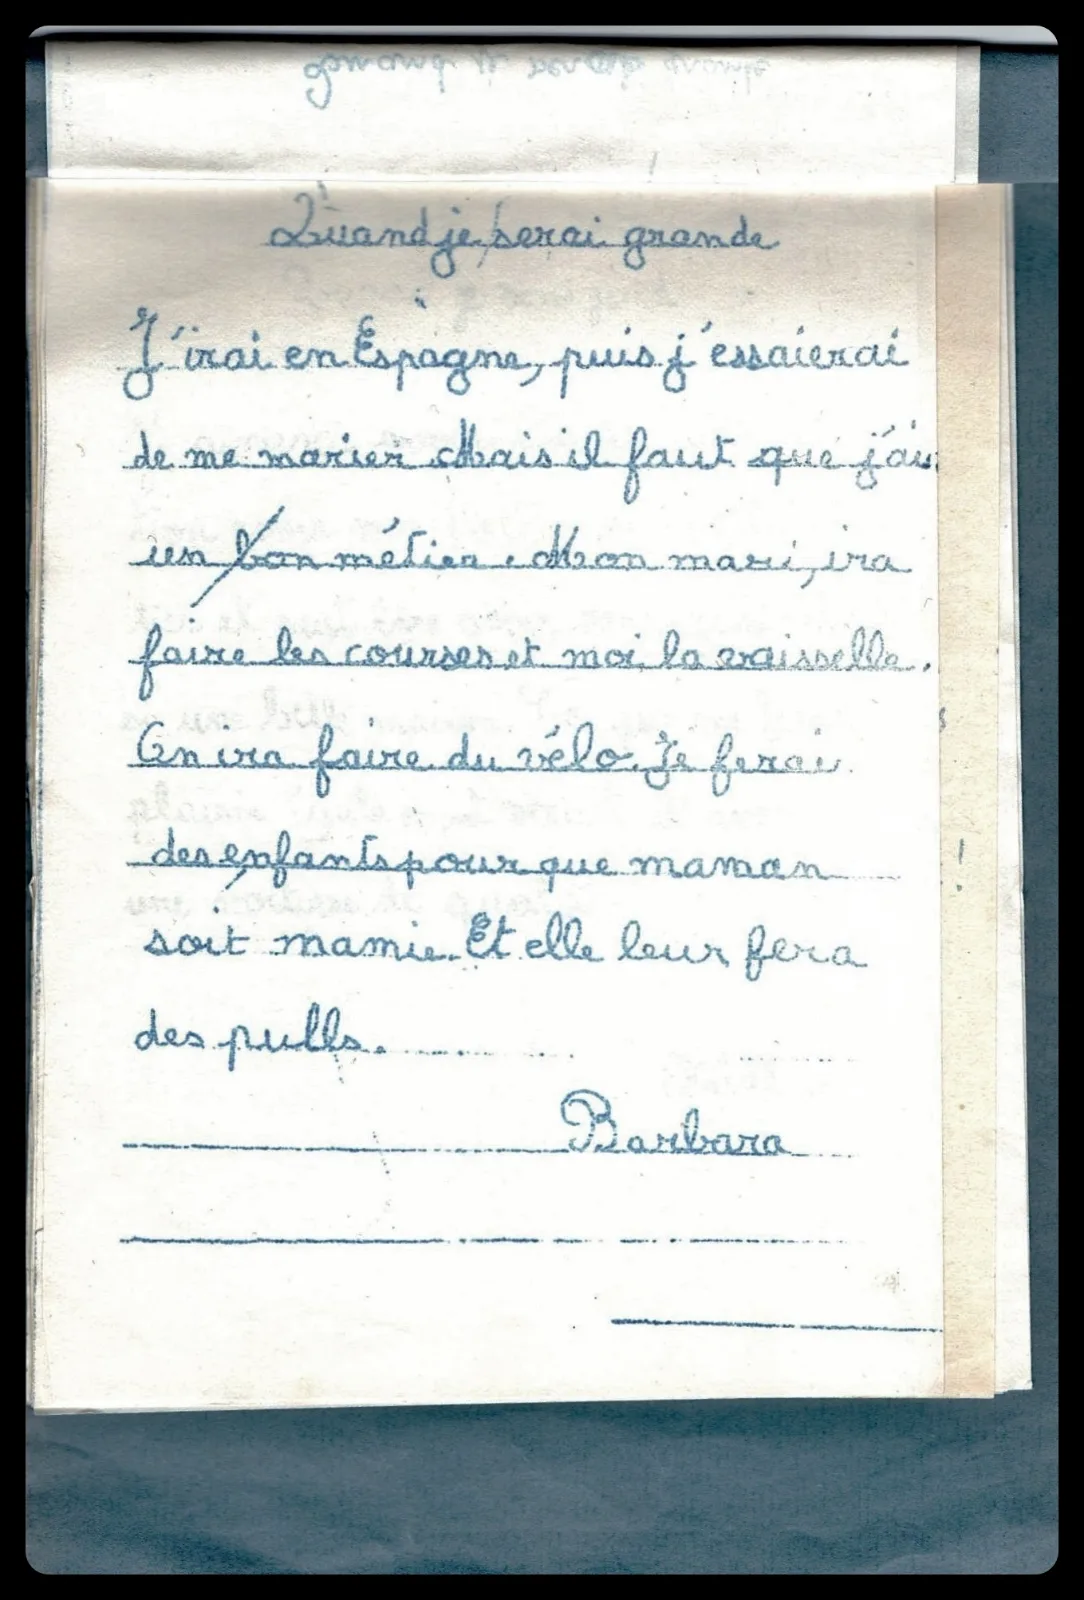 Quand je serai grande
J'irai en Espagne, puis j'essaierai
de me marier Mais il faut que j'ai
un bon métier. Mon mari, ira
faire les courses et moi la vaisselle.
On ira faire du vélo. Je ferai
des enfants pour que maman
soit mamie. Et elle leur fera
des pulls.
Barbara